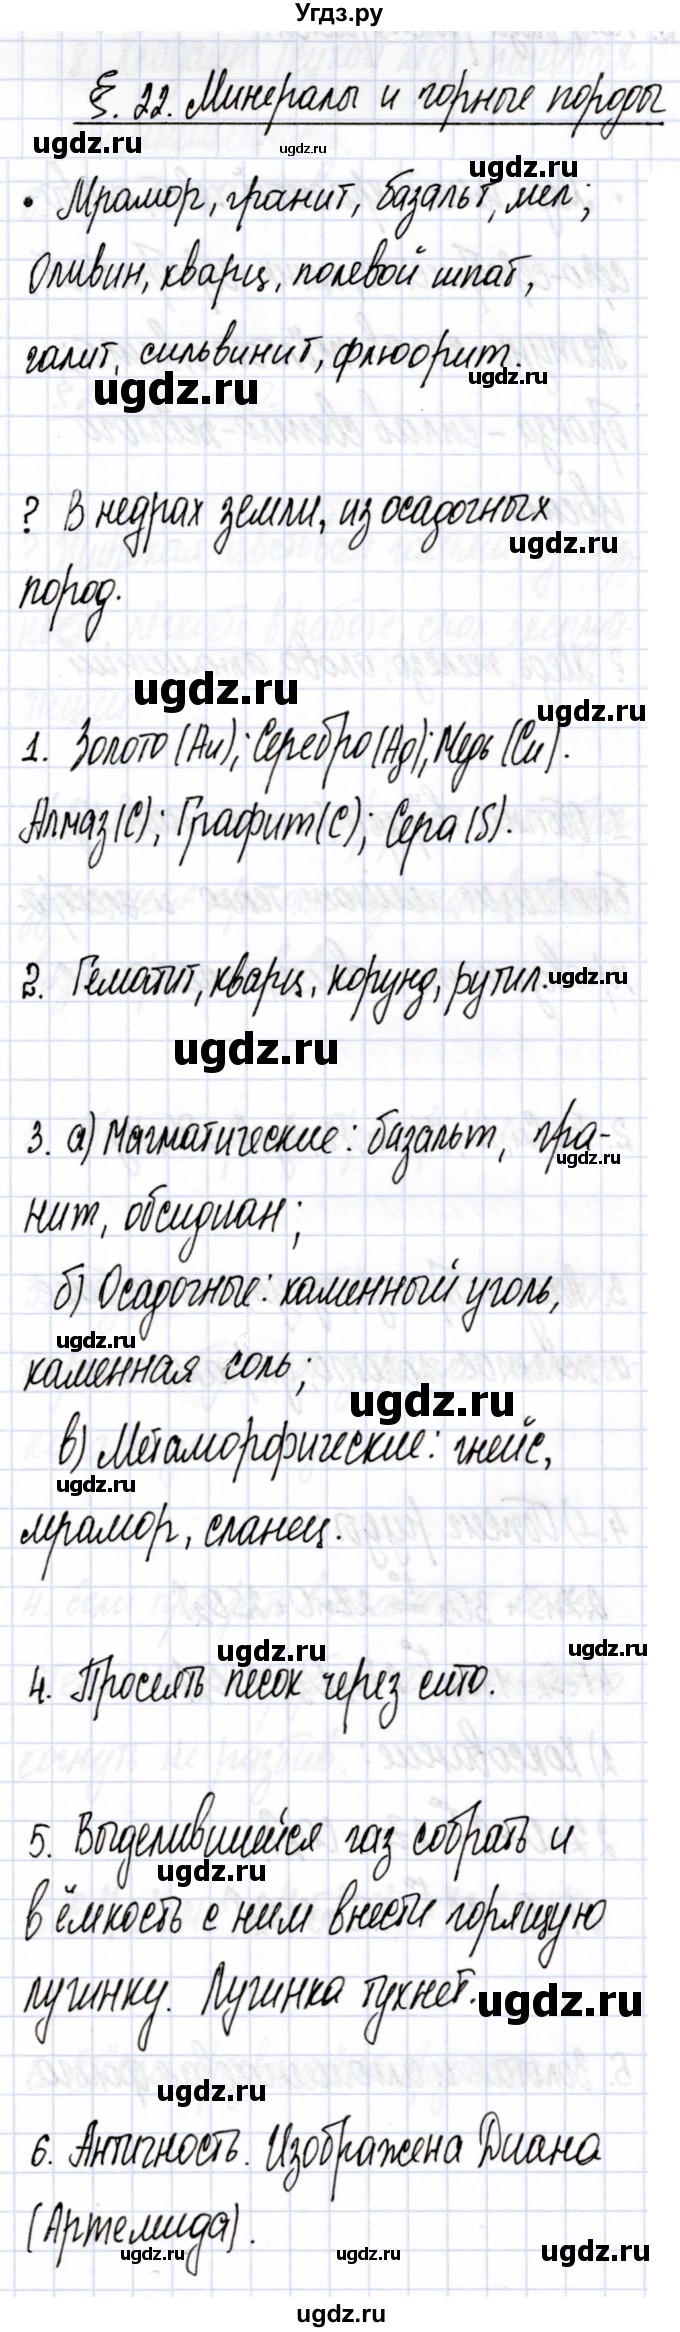 Угдз.ру
§. 22. Минералы и горные породы
ugdz.ru ugdz.ru ugdz.ru
• Мрамор, гранит, базальт, мел;
Оливин, кварц, полевой шпат,
галит, сильвинит, флюорит.
ugdz.ru ugdz.ru
? В недрах земли, из осадочных
ugdz.ru
пород.
ugdz.ru ugdz.ru
1. Золото (Au); Серебро (Ag); Медь (Cu).
Алмаз (С); Графит (С); Сера (S).
2. Гематит, кварц, корунд, рутил.
ugdz.ru
ugdz.ru
3. а) Магматические: базальт, гра-
ugdz.ru
нит, обсидиан;
б) Осадочные: каменный уголь,
ugdz.ru
каменная соль;
ugdz.ru
в) Метаморфические: гнейс,
ugdz.ru
мрамор, сланец.
ugdz.ru ugdz.ru
4. Просеять песок через сито.
5. Выделившейся газ собрать и
ugdz.ru
в ёмкость с ним внести горящую
лучинку. Лучинка тухнет.
ugdz.ru
ugdz.ru
6. Античность. Изображена Диана
(Артемида).
ugdz.ru ugdz.ru ugdz.ru
ugdz.ru